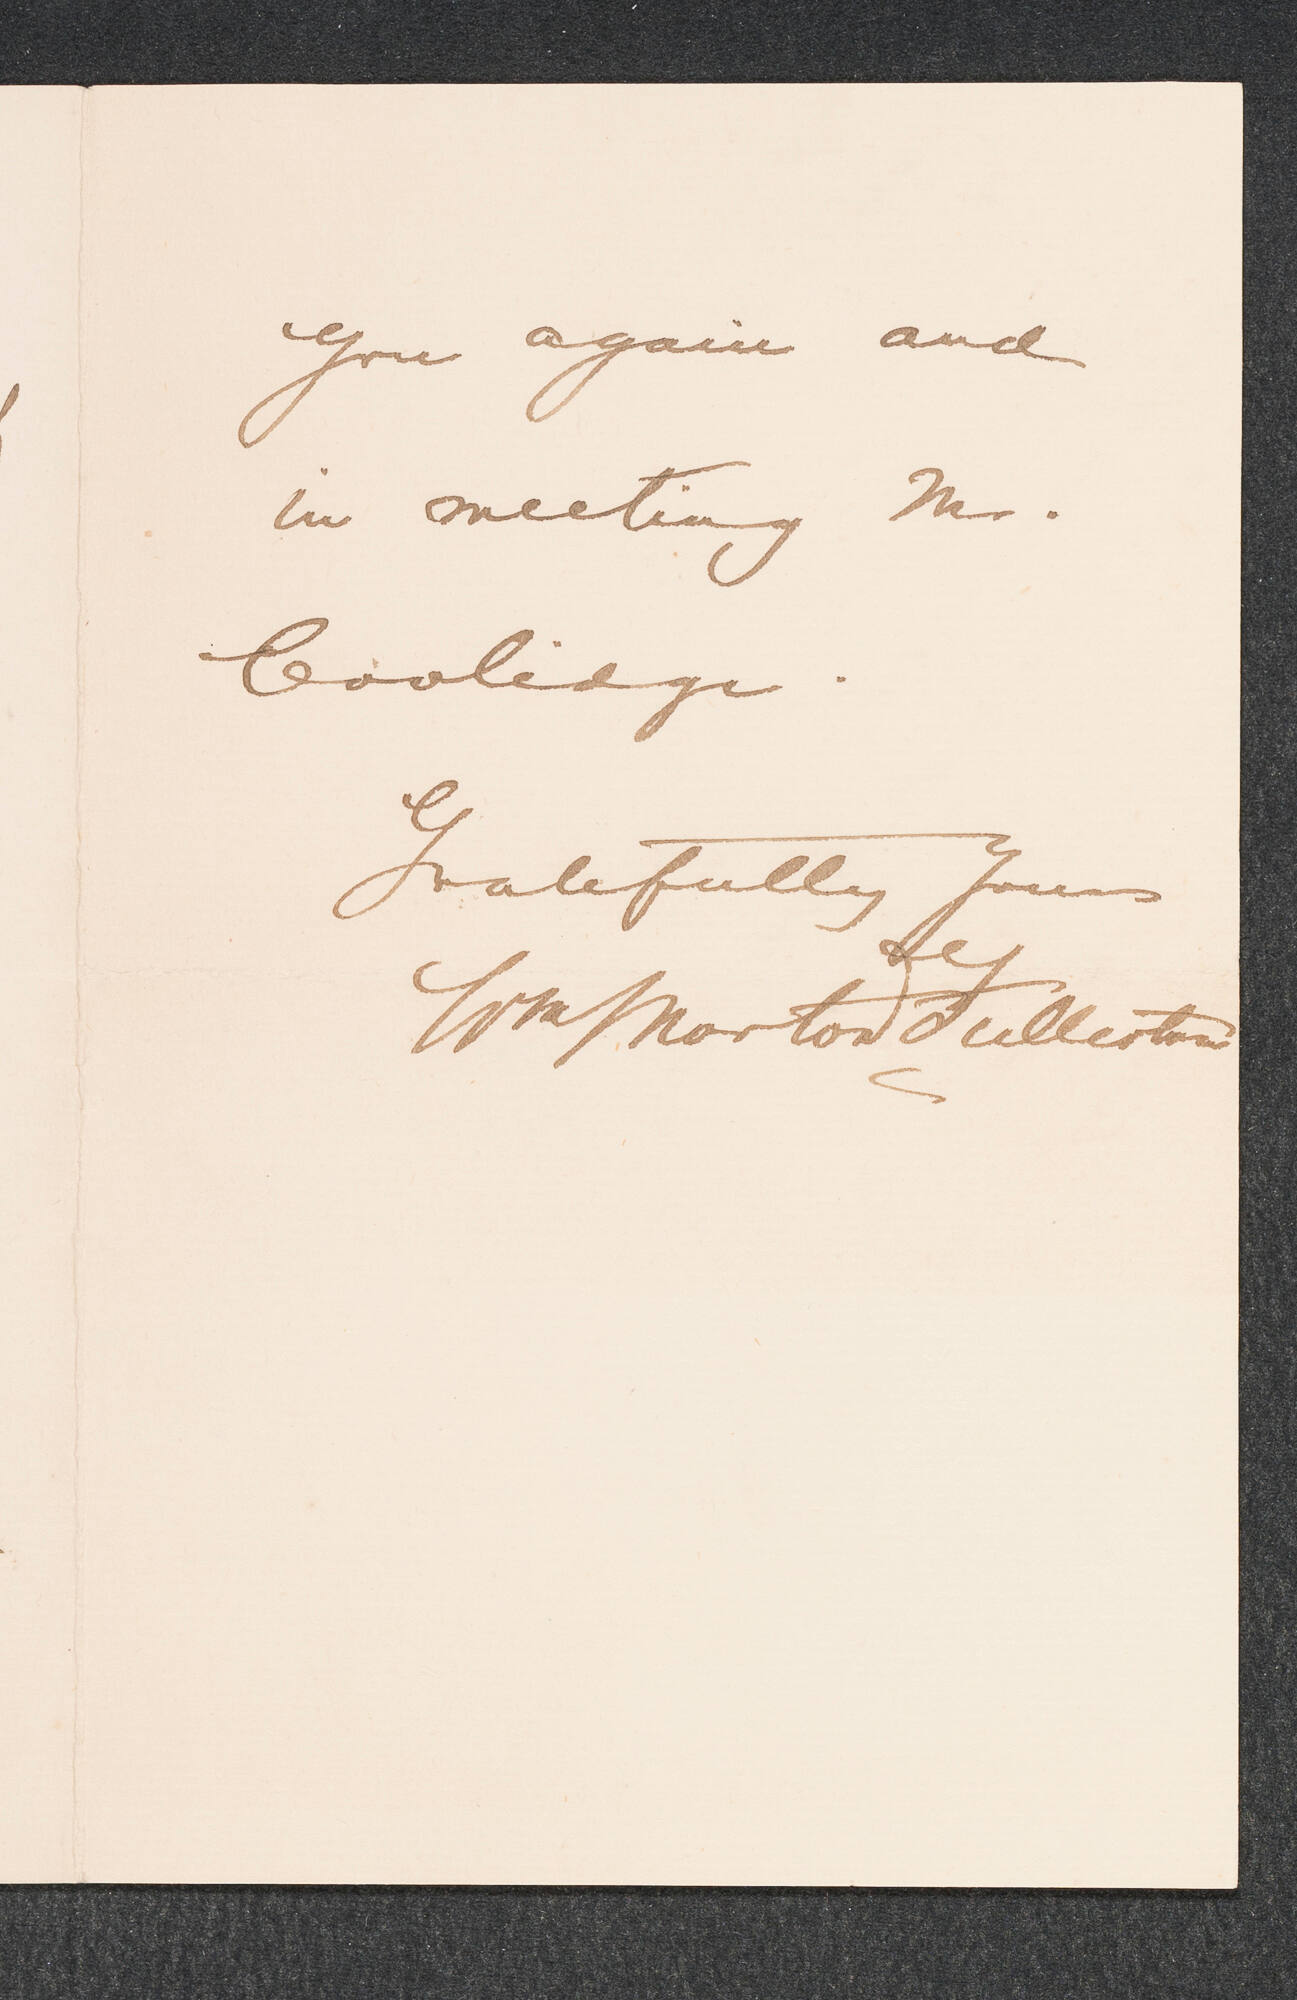 you again and
in meeting Mr.
Coolidge.
Gratefully Yours
Wm Morton Fullerton